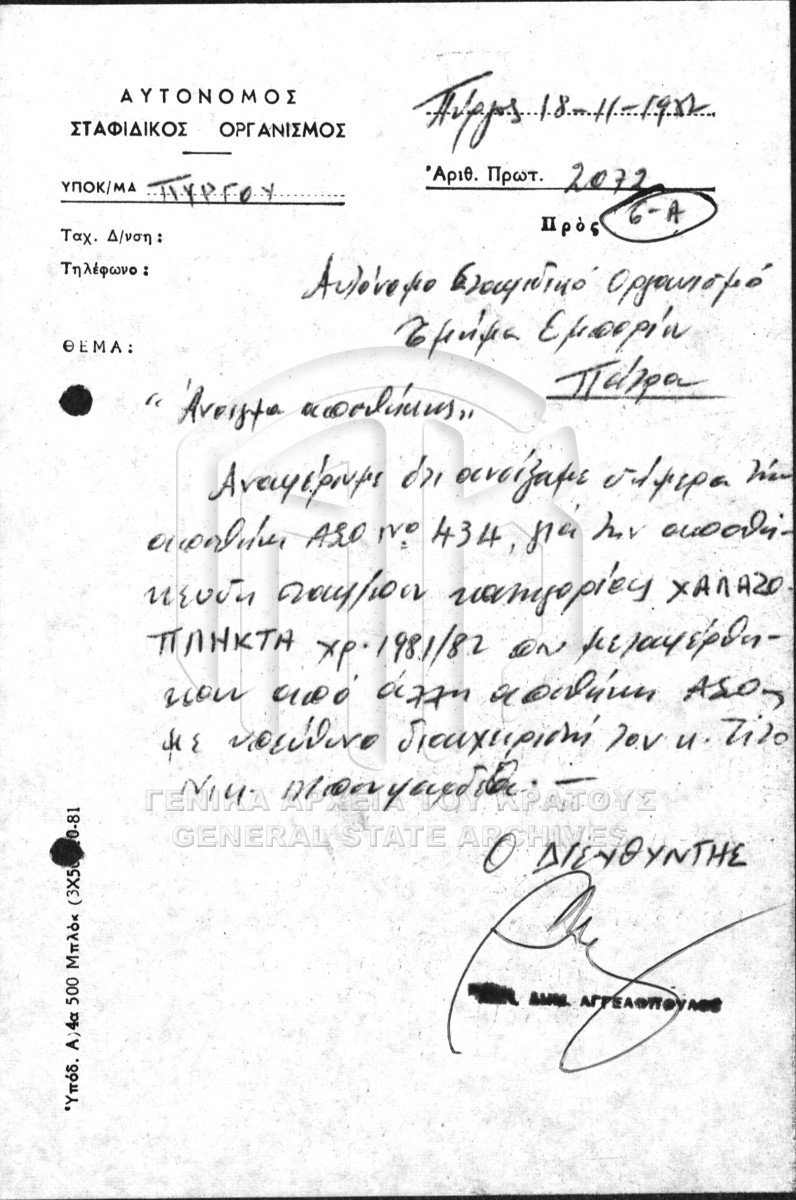 ΑΥΤΟΝΟΜΟΣ
ΣΤΑΦΙΔΙΚΟΣ ΟΡΓΑΝΙΣΜΟΣ
ΥΠΟΚ/ΜΑ ΠΥΡΓΟΥ
Ταχ. Δ/νση :
Τηλέφωνο :
Πύργος 18-11-1982
Ἀριθ. Πρωτ. 2072
Πρὸς 6-Α
Αυτόνομο Σταφιδικό Οργανισμό
Τμήμα Εμπορίας
Πάτρα
ΘΕΜΑ:
"Άνοιγμα αποθήκης"
Αναφέρουμε ότι ανοίξαμε σήμερα την
αποθήκη ΑΣΟ Νο 434, γιά την αποθή-
κευση σταφίδων κατηγορίας ΧΑΛΑΖΟ-
ΠΛΗΚΤΑ χρ. 1981/82 που μεταφέρθη-
καν από άλλη αποθήκη ΑΣΟ,
με υπεύθυνο διαχειριστή τον κ. Τίτο
Νικ.
Ο ΔΙΕΥΘΥΝΤΗΣ
ΔΗΜ. ΑΓΓΕΛΟΠΟΥΛΟΣ
ΓΕΝΙΚΑ ΑΡΧΕΙΑ ΤΟΥ ΚΡΑΤΟΥΣ
GENERAL STATE ARCHIVES
Ὑπόδ. Α)4α 500 Μπλόκ (3Χ50 10-81